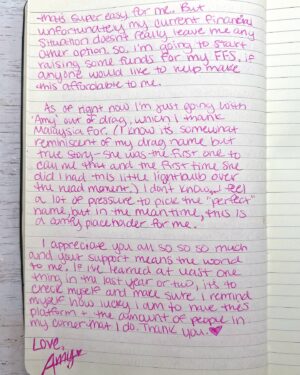 -that's super easy for me. But
unfortunately my current financial
situation doesn't really leave me any
other option. So, I'm going to start
raising some funds for my FFS, if
anyone would like to help make
this affordable to me.
As of right now I'm just going with
"Amy" out of drag, which I thank
Malaysia for. (I know its somewhat
reminiscent of my drag name but
true story - she was the first one to
call me that and the first time she
did I had this little lightbulb over
the head moment.) I don't know... I feel
a lot of pressure to pick the "perfect"
name, but in the meantime, this is
a comfy placeholder for me.
I appreciate you all so so so much
and your support means the world
to me. If I've learned at least one
thing in the last year or two, it's to
check myself and make sure I remind
myself how lucky I am to have this
platform + the amount of people in
my corner that I do. Thank you. ♥
Love,
Amy